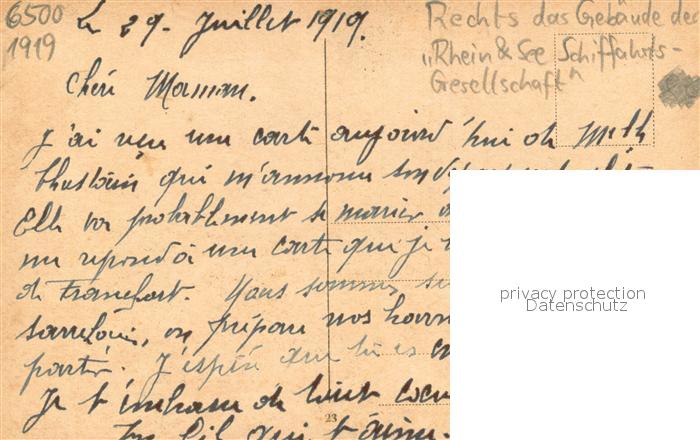 6500
1919
Le 29. Juillet 1919.
Rechts das Gebäude de
"Rhein & See Schiffahrts-
Gesellschaft"
Chère Maman.
J'ai reçu une carte aujourd'hui de
qui m'annonce son
Elle va probablement se marier
me repond à une carte que je
de Francfort. Nous sommes
on prépare nos
partir. J'espère que tu es
Je t'embrasse de tout coeur
Ton fils qui t'aime.
23
privacy protection
Datenschutz